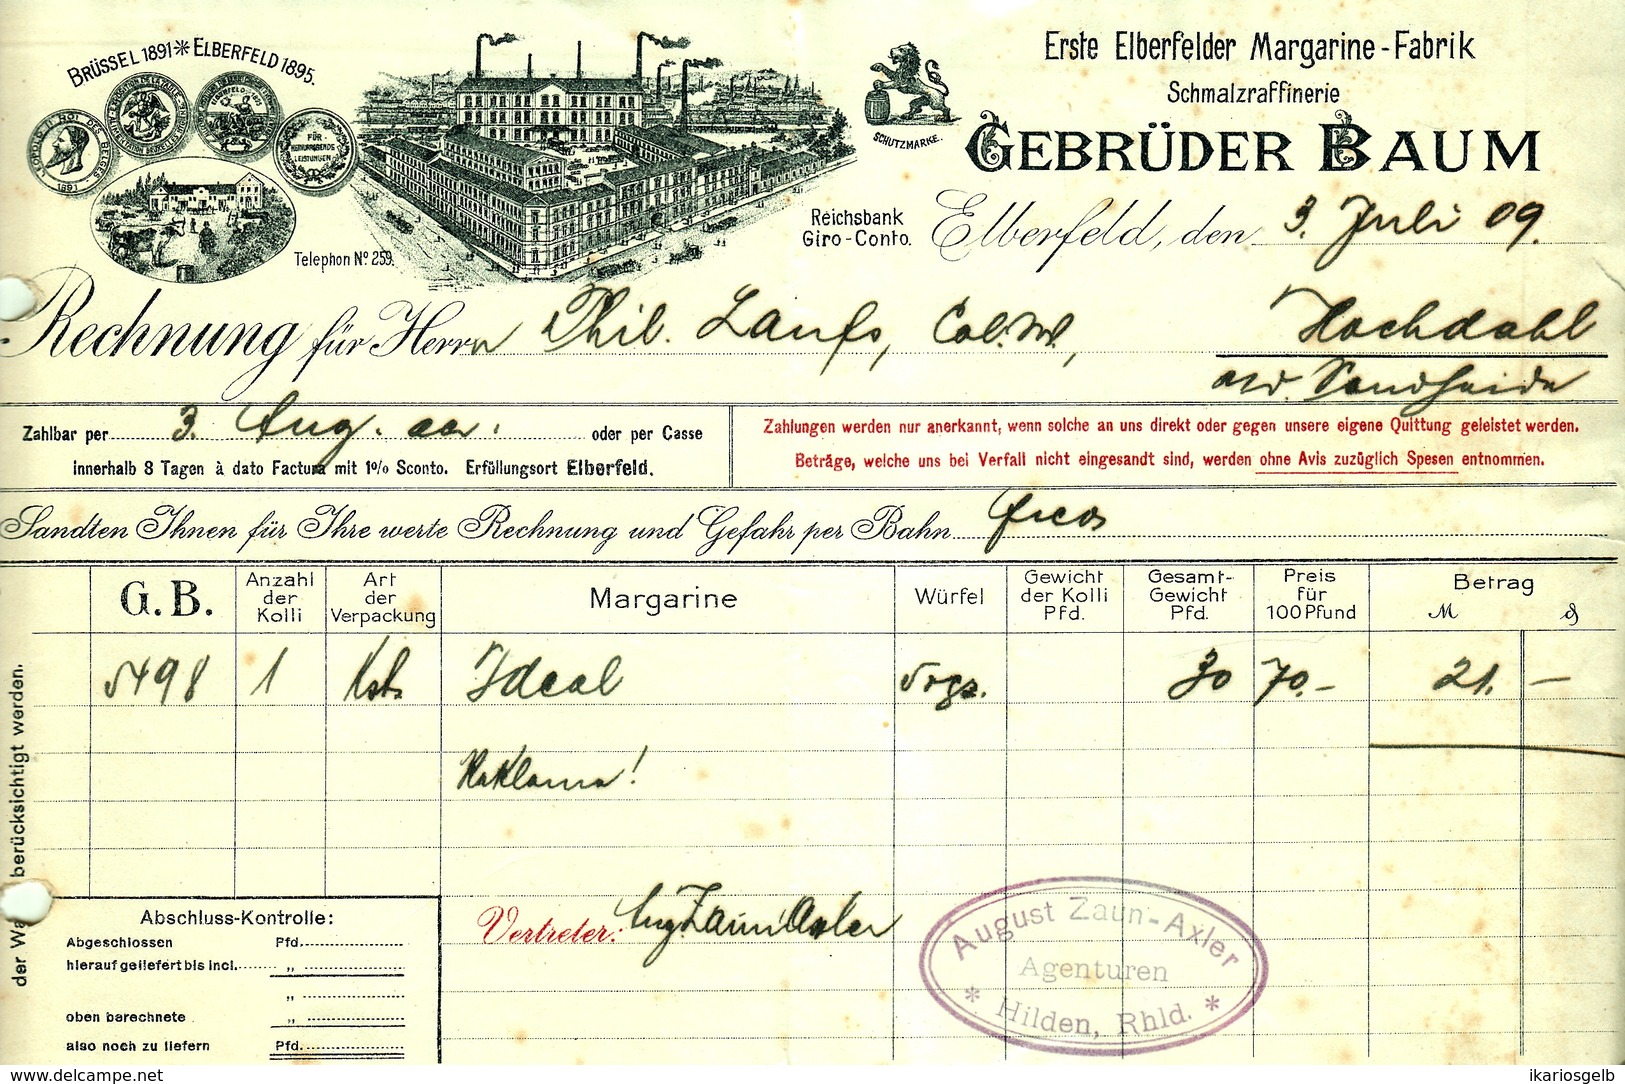 BRÜSSEL 1891 * ELBERFELD 1895.
LEOPOLD II ROI DES BELGES
1891
FÜR
HERVORRAGENDE
LEISTUNGEN
Telephon No 259.
SCHUTZMARKE.
Erste Elberfelder Margarine-Fabrik
Schmalzraffinerie
GEBRÜDER BAUM
Reichsbank
Giro-Conto.
Elberfeld, den 3. Juli 09.
Rechnung für Herrn Phil. Laufs, Col. W., Hochdahl
Zahlbar per 3. Aug. oder per Casse
innerhalb 8 Tagen à dato Factura mit 1% Sconto. Erfüllungsort Elberfeld.
Zahlungen werden nur anerkannt, wenn solche an uns direkt oder gegen unsere eigene Quittung geleistet werden.
Beträge, welche uns bei Verfall nicht eingesandt sind, werden ohne Avis zuzüglich Spesen entnommen.
Sandten Ihnen für Ihre werte Rechnung und Gefahr per Bahn
G.B.
Anzahl der Kolli
Art der Verpackung
Margarine
Würfel
Gewicht der Kolli Pfd.
Gesamt-Gewicht Pfd.
Preis für 100 Pfund
Betrag
M ₰
5498 1 Kst. Ideal 30 70.- 21. —
Reklame!
der Wa berücksichtigt werden.
Abschluss-Kontrolle:
Abgeschlossen Pfd.
hierauf geliefert bis incl. „
„
oben berechnete „
also noch zu liefern Pfd.
Vertreter: Aug. Zaun-Axler
August Zaun-Axler
Agenturen
* Hilden, Rhld. *
www.delcampe.net
ikariosgelb